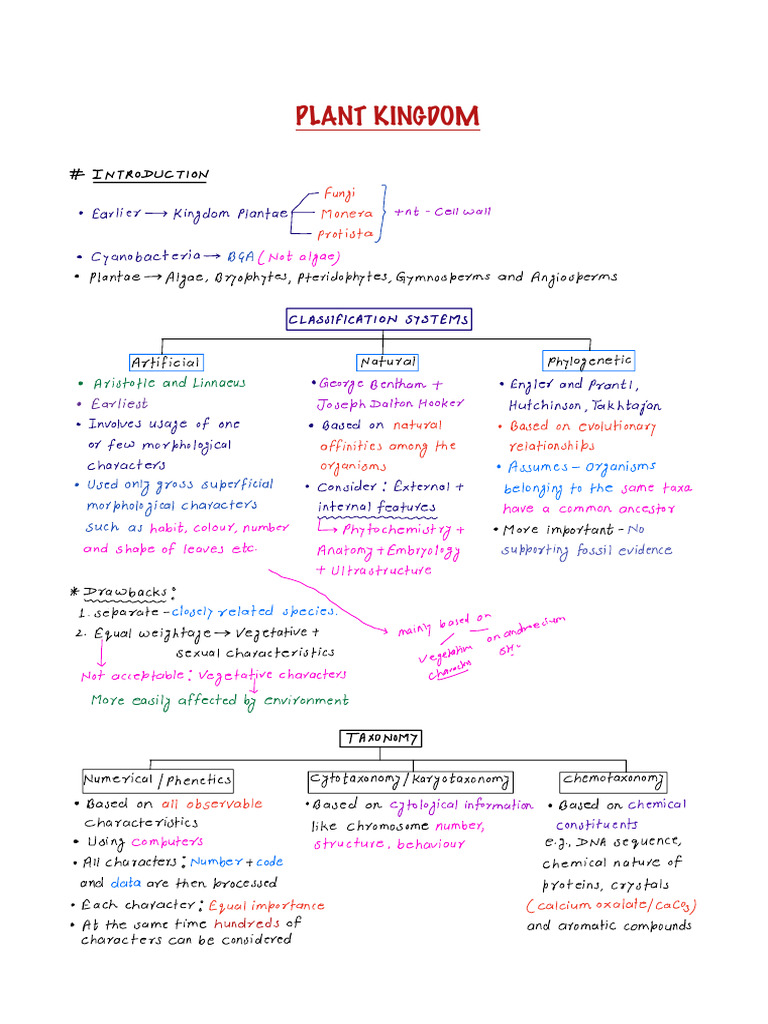 PLANT KINGDOM
# INTRODUCTION
• Earlier → Kingdom Plantae
Fungi
Monera
Protista
+nt - Cell wall
• Cyanobacteria → BGA (Not algae)
• Plantae → Algae, Bryophytes, Pteridophytes, Gymnosperms and Angiosperms
CLASSIFICATION SYSTEMS
Artificial
• Aristotle and Linnaeus
• Earliest
• Involves usage of one
or few morphological
characters
• Used only gross superficial
morphological characters
such as habit, colour, number
and shape of leaves etc.
Natural
• George Bentham +
Joseph Dalton Hooker
• Based on natural
affinities among the
organisms
• Consider: External +
internal features
→ Phytochemistry +
Anatomy + Embryology
+ Ultrastructure
Phylogenetic
• Engler and Prantl,
Hutchinson, Takhtajan
• Based on evolutionary
relationships
• Assumes - Organisms
belonging to the same taxa
have a common ancestor
• More important - No
supporting fossil evidence
* Drawbacks:
1. Separate - closely related species.
2. Equal weightage → Vegetative +
sexual characteristics
Not acceptable: Vegetative characters
More easily affected by environment
mainly based on
vegetative
characters
on androecium
TAXONOMY
Numerical / Phenetics
• Based on all observable
characteristics
• Using computers
• All characters: Number + code
and data are then processed
• Each character: Equal importance
• At the same time hundreds of
characters can be considered
Cytotaxonomy / Karyotaxonomy
• Based on cytological information
like chromosome number,
structure, behaviour
Chemotaxonomy
• Based on chemical
constituents
e.g., DNA sequence,
chemical nature of
proteins, crystals
(calcium oxalate/CaCO3)
and aromatic compounds